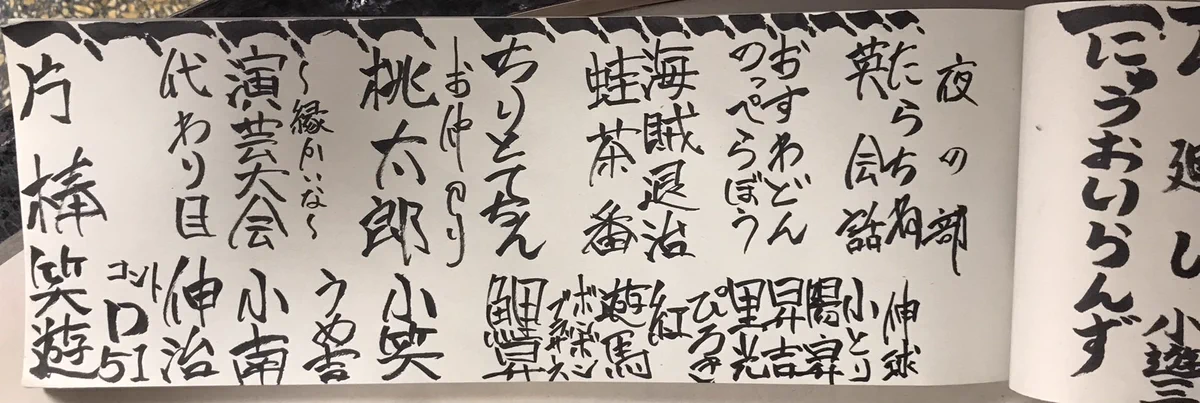 廻し 小遊三
にゅうおいらんず
夜の部
たらちね 伸球
英会話 小とり
陽昇
おすわどん 昇吉
のっぺらぼう 里光
ぴろき
海賊退治 紅
蛙茶番 遊馬
ボンボン
ブラザース
ちりとてちん 鯉昇
〜お仲入り〜
桃太郎 小笑
〜縁かいな〜 うめ吉
演芸大会 小南
代わり目 伸治
コント
D51
片棒 笑遊